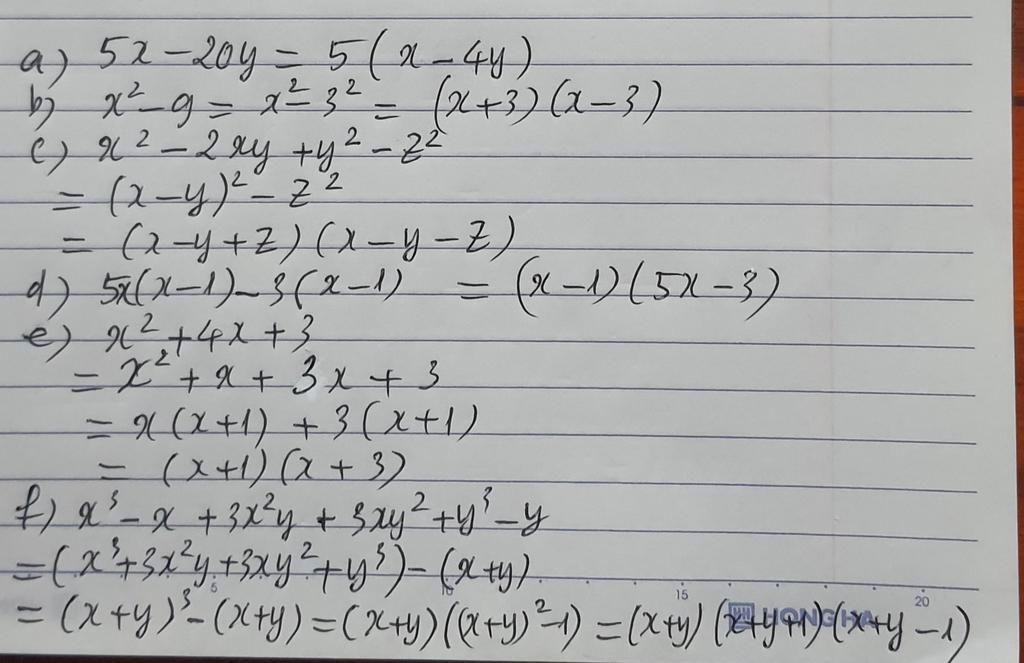 a) 5x - 20y = 5(x - 4y)
b) x² - 9 = x² - 3² = (x+3)(x-3)
c) x² - 2xy + y² - z²
= (x-y)² - z²
= (x-y+z)(x-y-z)
d) 5x(x-1) - 3(x-1) = (x-1)(5x-3)
e) x² + 4x + 3
= x² + x + 3x + 3
= x(x+1) + 3(x+1)
= (x+1)(x+3)
f) x³ - x + 3x²y + 3xy² + y³ - y
= (x³ + 3x²y + 3xy² + y³) - (x+y)
5 10 15 20
= (x+y)³ - (x+y) = (x+y)((x+y)² - 1) = (x+y)(x+y+1)(x+y-1)
HONG HA